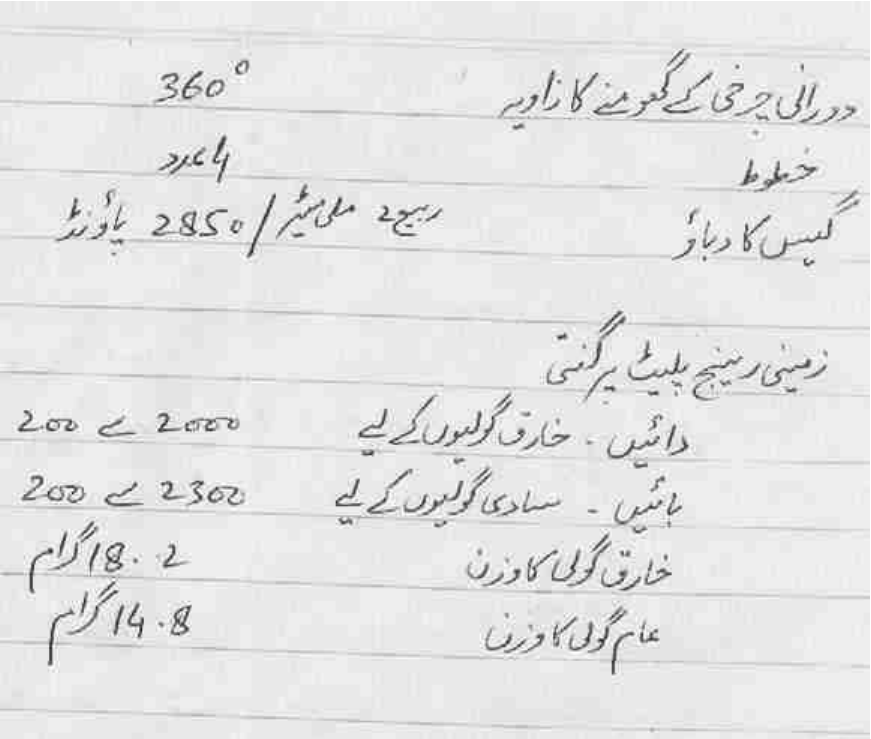 دورانی چرخی کے گھومنے کا زاویہ 360°
خطوط 4 عدد
گیس کا دباؤ ملی میٹر / 2850 پاؤنڈ
زمینی رینج پلیٹ پر گنتی
دائیں ۔ خارق گولیوں کے لیے 2000 سے 200
بائیں ۔ سادی گولیوں کے لیے 2300 سے 200
خارق گولی کا وزن 18.2 گرام
عام گولی کا وزن 14.8 گرام